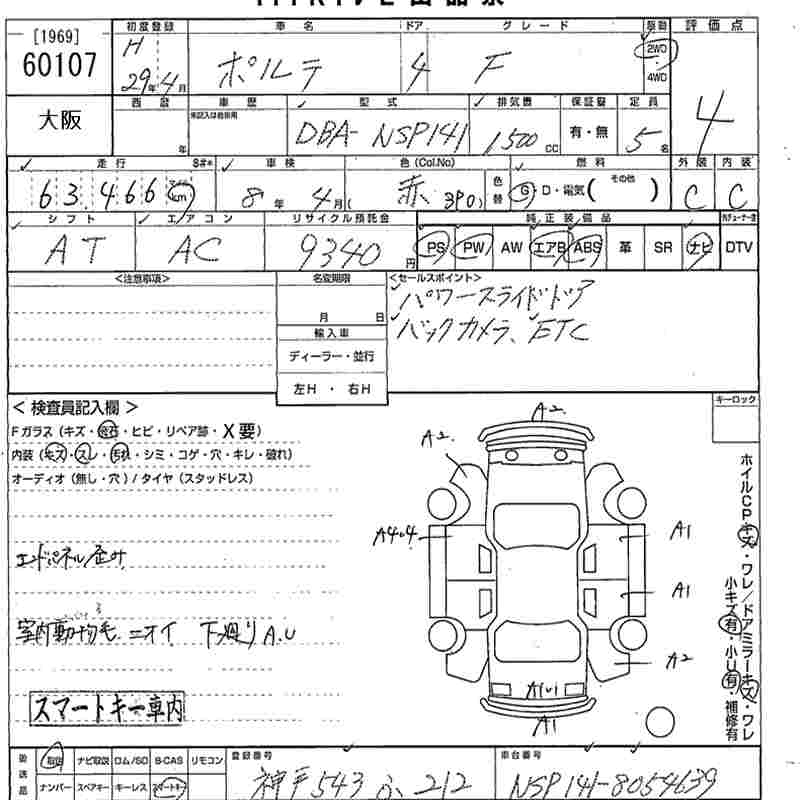 [1969]
60107
大阪
初度登録 車名 ドア グレード 駆動 評価点
H 29年4月 ポルテ 4 F 2WD 4WD 4
西暦 車歴 型式 排気量 保証書 定員
年 未記入は自家用 DBA-NSP141 1500cc 有・無 5名
走行 車検 色(Col.No) 色替 燃料 外装 内装
63,466 マイル km 8年4月( 赤 3P0) G・D・電気( その他 ) C C
シフト エアコン リサイクル預託金 純正装備品
AT AC 9340円 PS PW AW エアB ABS 革 SR ナビ DTV
<注意事項> 名変期限 <セールスポイント>
月 日 パワースライドドア
輸入車 バックカメラ、ETC
ディーラー・並行
左H・右H
<検査員記入欄> キーロック
Fガラス(キズ・飛石・ヒビ・リペア跡・X要)
内装(キズ・スレ・汚れ・シミ・コゲ・穴・キレ・破れ)
オーディオ(無し・穴)/タイヤ(スタッドレス)
エンドパネル歪み
室内動物毛.ニオイ 下廻りA.U
スマートキー車内
A2
A2.
A1
A1
A2
A1
ホイルCPキズ・ワレ/ドアミラーキズ・ワレ
小キズ有・小U有・補修有
後送品 取説 ナビ取説 ロム/SD B-CAS リモコン 登録番号 車台番号
ナンバー スペアキー キーレス スマートキー 神戸543 212 NSP141-8054639